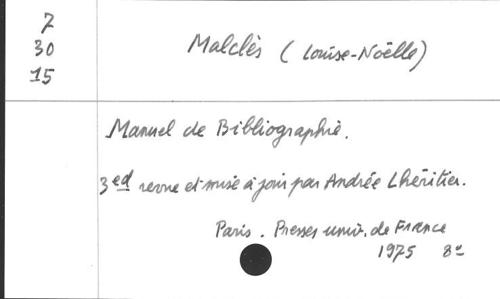 7
30
15
Malclès (Louise-Noëlle)
Manuel de Bibliographie.
3 ed revue et mise à jour par Andrée Lhéritier.
Paris. Presses univ. de France
1975 8°